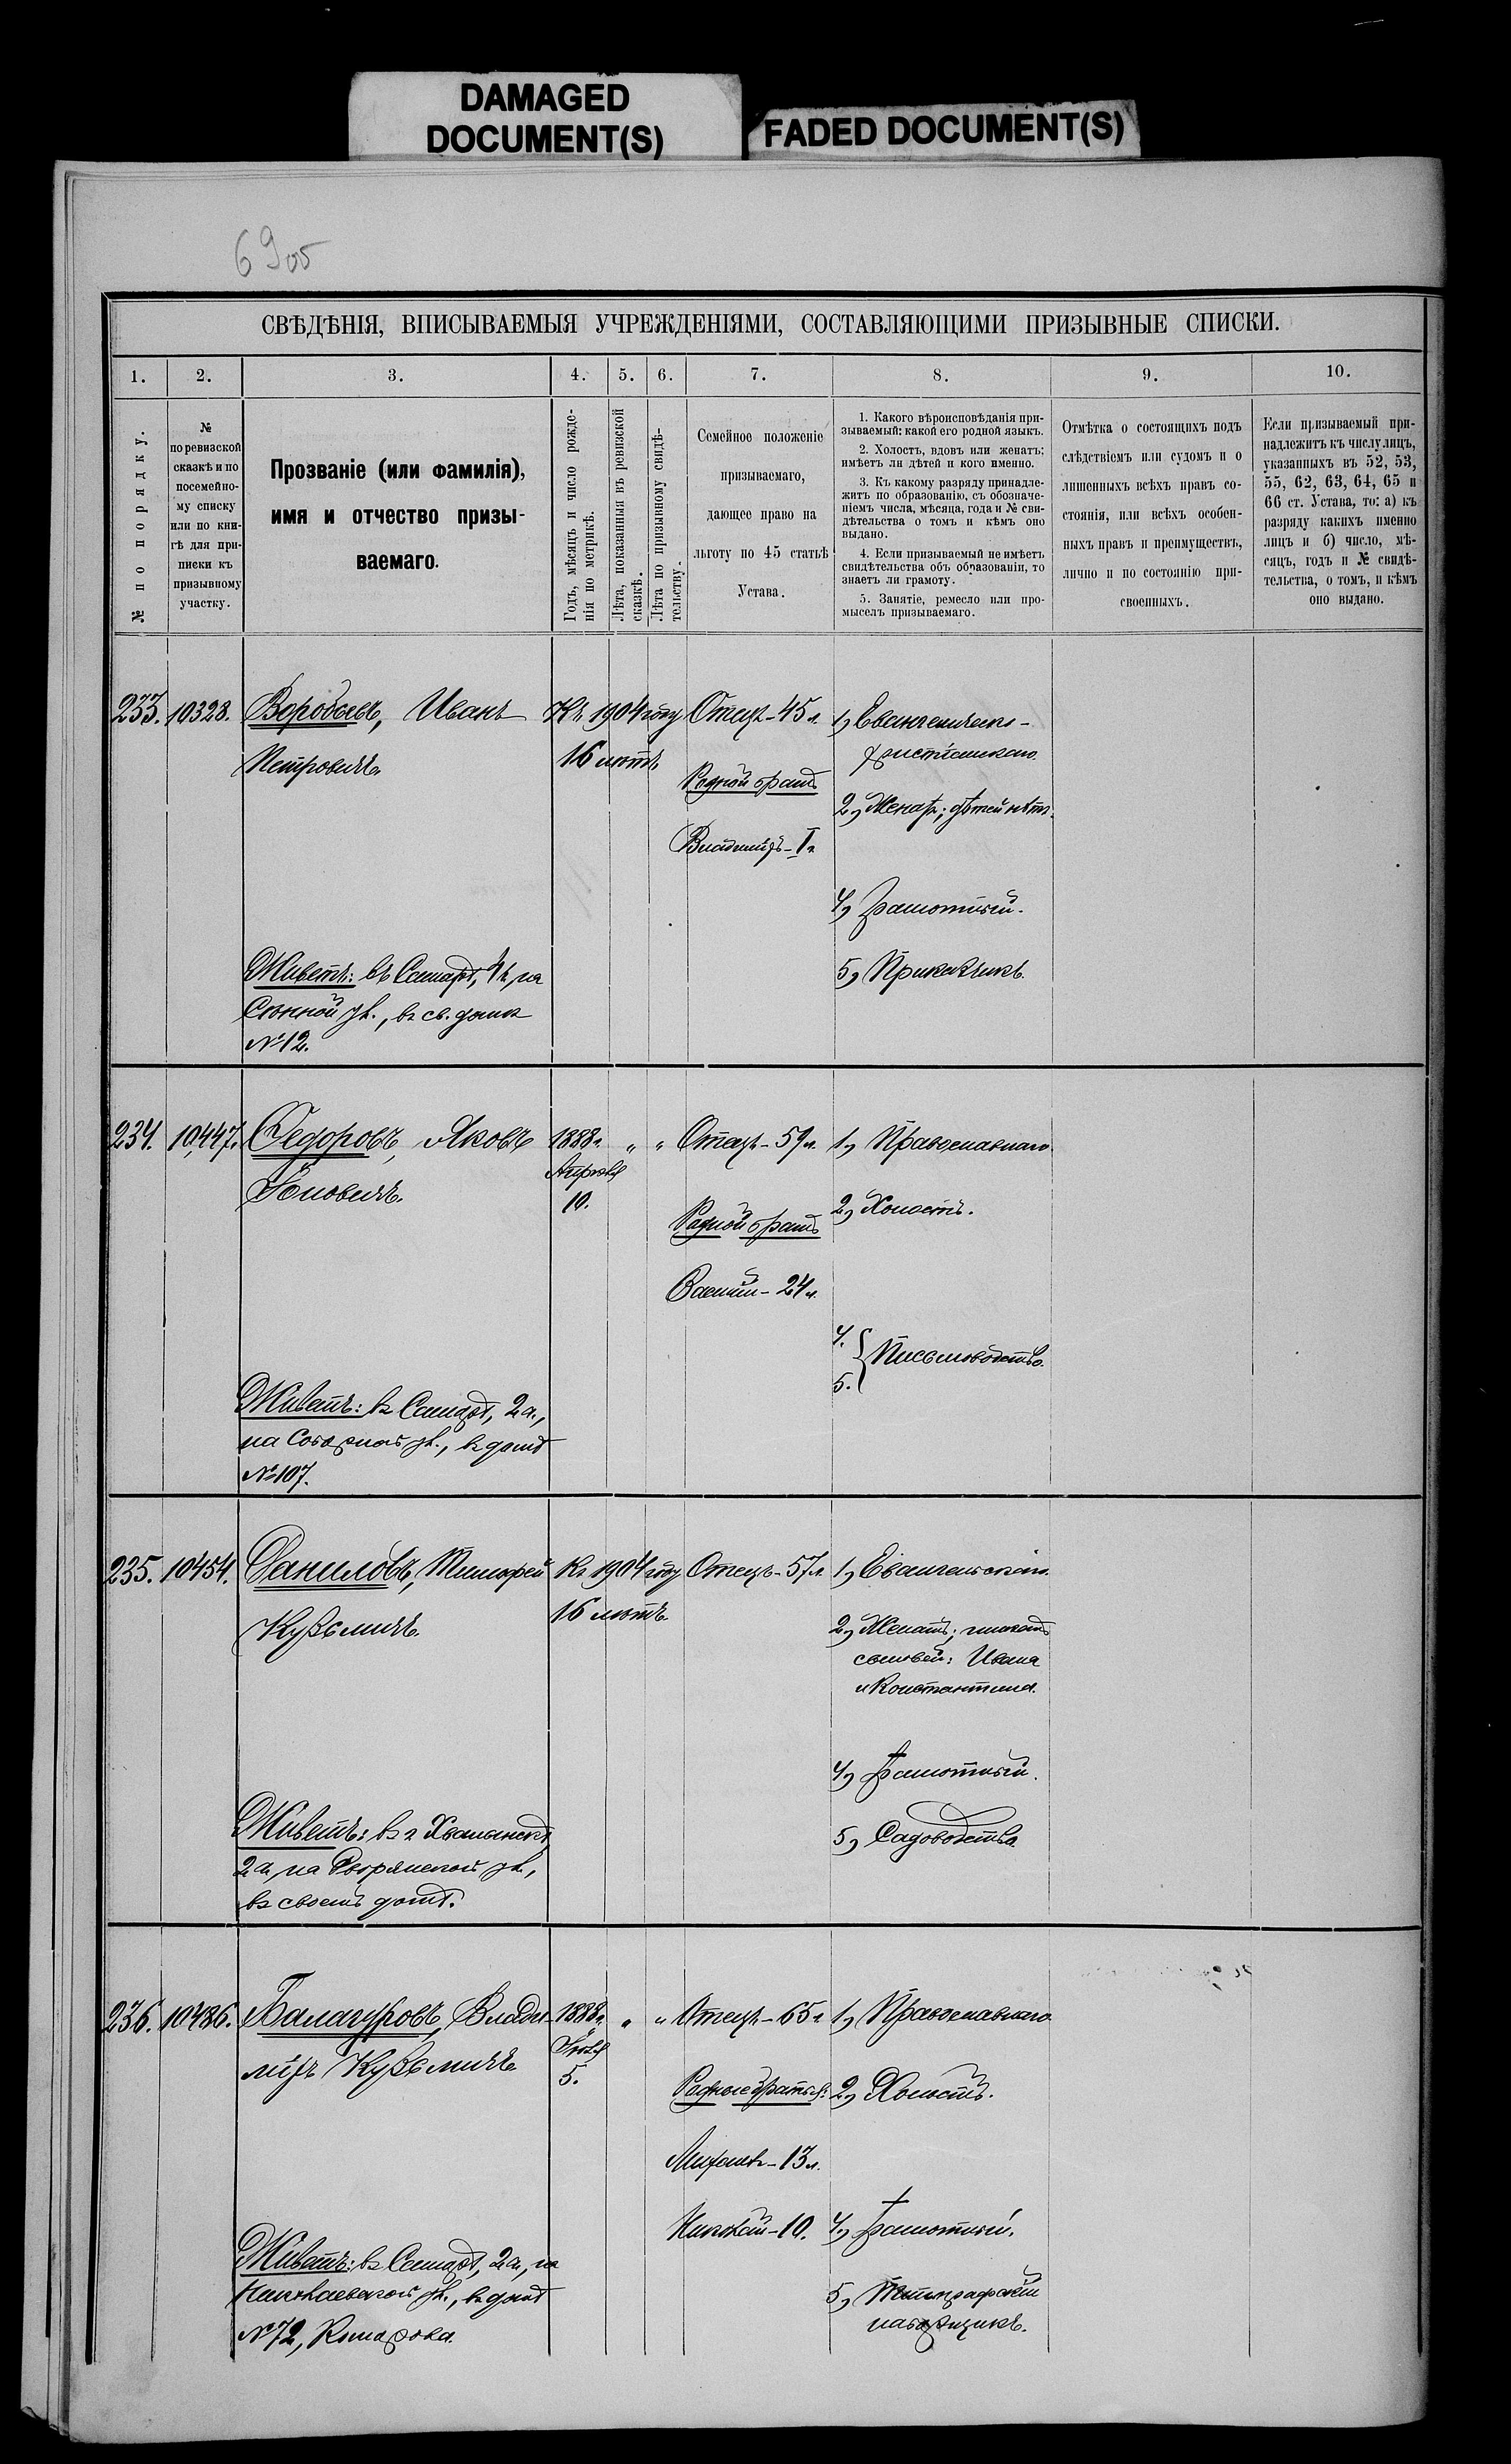 DAMAGED
DOCUMENT(S)
FADED DOCUMENT(S)
СВѢДѢНІЯ, ВПИСЫВАЕМЫЯ УЧРЕЖДЕНІЯМИ, СОСТАВЛЯЮЩИМИ ПРИЗЫВНЫЕ СПИСКИ.
1.
2.
3.
4.
5.
6.
7.
8.
9.
10.
№ по порядку.
№
по ревизской
сказкѣ и по
посемейно-
му списку
или по кни-
гѣ для при-
писки къ
призывному
участку.
Прозваніе (или фамилія),
имя и отчество призы-
ваемаго.
Годъ, мѣсяцъ и число рожде-
нія по метрикѣ.
Лѣта, показанныя въ ревизской
сказкѣ.
Лѣта по призывному свидѣ-
тельству.
Семейное положеніе
призываемаго,
дающее право на
льготу по 45 статьѣ
Устава.
1. Какого вѣроисповѣданія при-
зываемый: какой его родной языкъ.
2. Холостъ, вдовъ или женатъ;
имѣетъ ли дѣтей и кого именно.
3. Къ какому разряду принадле-
житъ по образованію, съ обозначе-
ніемъ числа, мѣсяца, года и № сви-
дѣтельства о томъ и кѣмъ оно
выдано.
4. Если призываемый не имѣетъ
свидѣтельства объ образованіи, то
знаетъ ли грамоту.
5. Занятіе, ремесло или про-
мыселъ призываемаго.
Отмѣтка о состоящихъ подъ
слѣдствіемъ или судомъ и о
лишенныхъ всѣхъ правъ со-
стоянія, или всѣхъ особен-
ныхъ правъ и преимуществъ,
лично и по состоянію при-
своенныхъ.
Если призываемый при-
надлежитъ къ числу лицъ,
указанныхъ въ 52, 53,
55, 62, 63, 64, 65 и
66 ст. Устава, то: а) къ
разряду какихъ именно
лицъ и б) число, мѣ-
сяцъ, годъ и № свидѣ-
тельства, о томъ, и кѣмъ
оно выдано.
233.
10328.
Воробьевъ, Иванъ
Петровичъ.
Живетъ: въ Самарѣ, 4 ч, на
Сѣнной ул., въ св. домѣ
№ 12.
Къ 1904 году
16 лѣтъ
Отецъ - 45 л.
Родной братъ
Владиміръ - 1 г.
1, Евангелическо-
христіанскаго.
2, Женатъ; дѣтей нѣтъ.
4, Грамотный.
5, Приказчикъ.
234.
10447.
Федоровъ, Яковъ
Юновичъ.
Живетъ: въ Самарѣ, 2 ч.,
на Соборной ул., въ домѣ
№ 107.
1888 г.
Апрѣля
10.
" "
Отецъ - 59 л.
Родной братъ
Василій - 24 л.
1, Православнаго.
2, Холостъ.
4.
5.
Письмоводство.
235.
10454.
Даниловъ, Тимофей
Кузьмичъ.
Живетъ: въ г. Хвалынскѣ,
2 ч, на Дворянской ул.,
въ своемъ домѣ.
Къ 1904 году
16 лѣтъ.
Отецъ - 57 л.
1, Евангельскаго.
2, Женатъ;
сыновей: Ивана
и Константина.
4, Грамотный.
5, Садоводство.
236.
10486.
Балагуровъ, Влади-
міръ Кузьмичъ
Живетъ: въ Самарѣ, 2 ч., на
Николаевской ул., въ домѣ
№ 72, Комарова.
1888 г.
5.
" "
Отецъ - 65 л.
Родные братья:
Михаилъ - 13 л.
Николай - 10.
1, Православнаго.
2, Холостъ.
4, Грамотный.
5, Типографскій
наборщикъ.